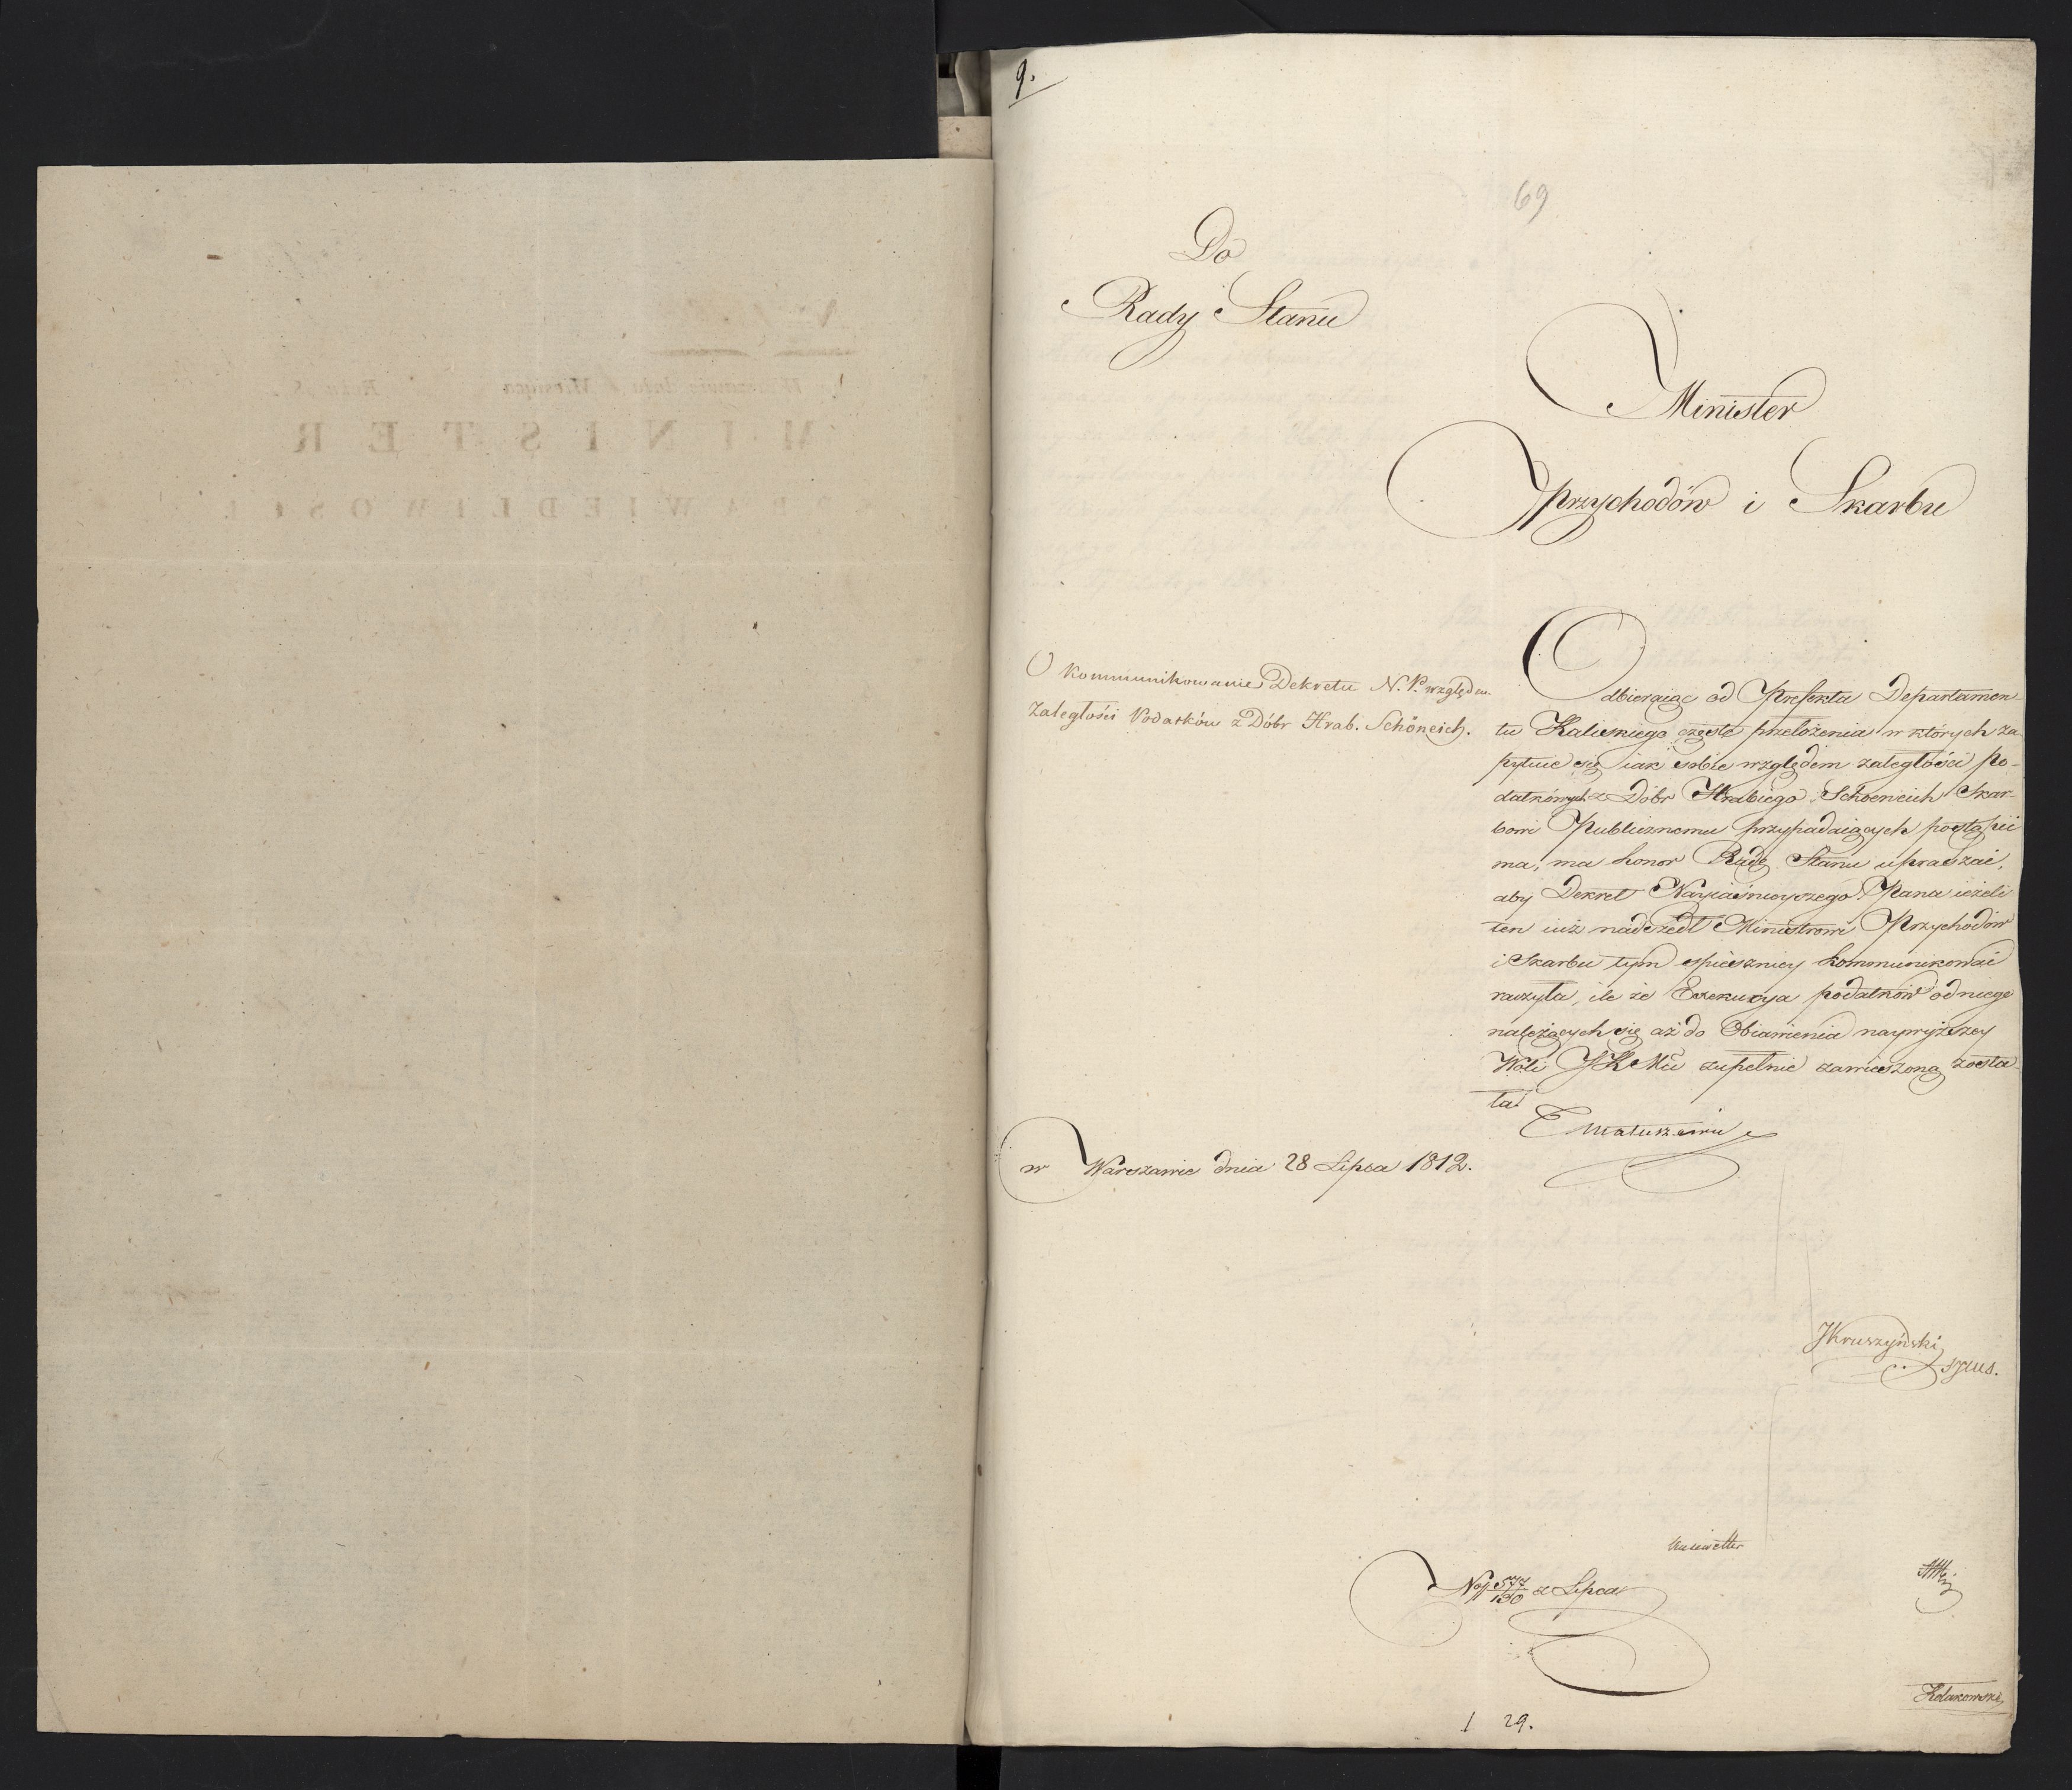 9.
69
Do
Rady Stanu
Minister
Przychodów i Skarbu
O Kommunikowanie Dekretu N. P. względem
Zaległości Podatków z Dóbr Hrab. Schöneich.
Odbieraiąc od Prefekta Departamen-
tu Kaliskiego częste przełożenia w których za-
pytuie się iak sobie względem zaległości po-
datkowych z Dóbr Hrabiego Schoeneich Skar-
bowi Publicznemu przypadaiących postąpić
ma, ma honor Radę Stanu upraszać,
aby Dekret Nayiaśnieyszego Pana ieżeli
ten iuż nadszedł Ministrowi Przychodów
i Skarbu tym spieszniey kommunikować
raczyła, ile że Exekucya podatków od niego
należących się aż do Obiawienia naywyższey
Woli JKMci zupełnie zawieszoną zosta-
ła.
Matuszewic
w Warszawie dnia 28 Lipca 1812.
JKruszyński
No 577/130 z Lipca
Kołakowski
1 29.
MINISTER
SPRAWIEDLIWOSCI